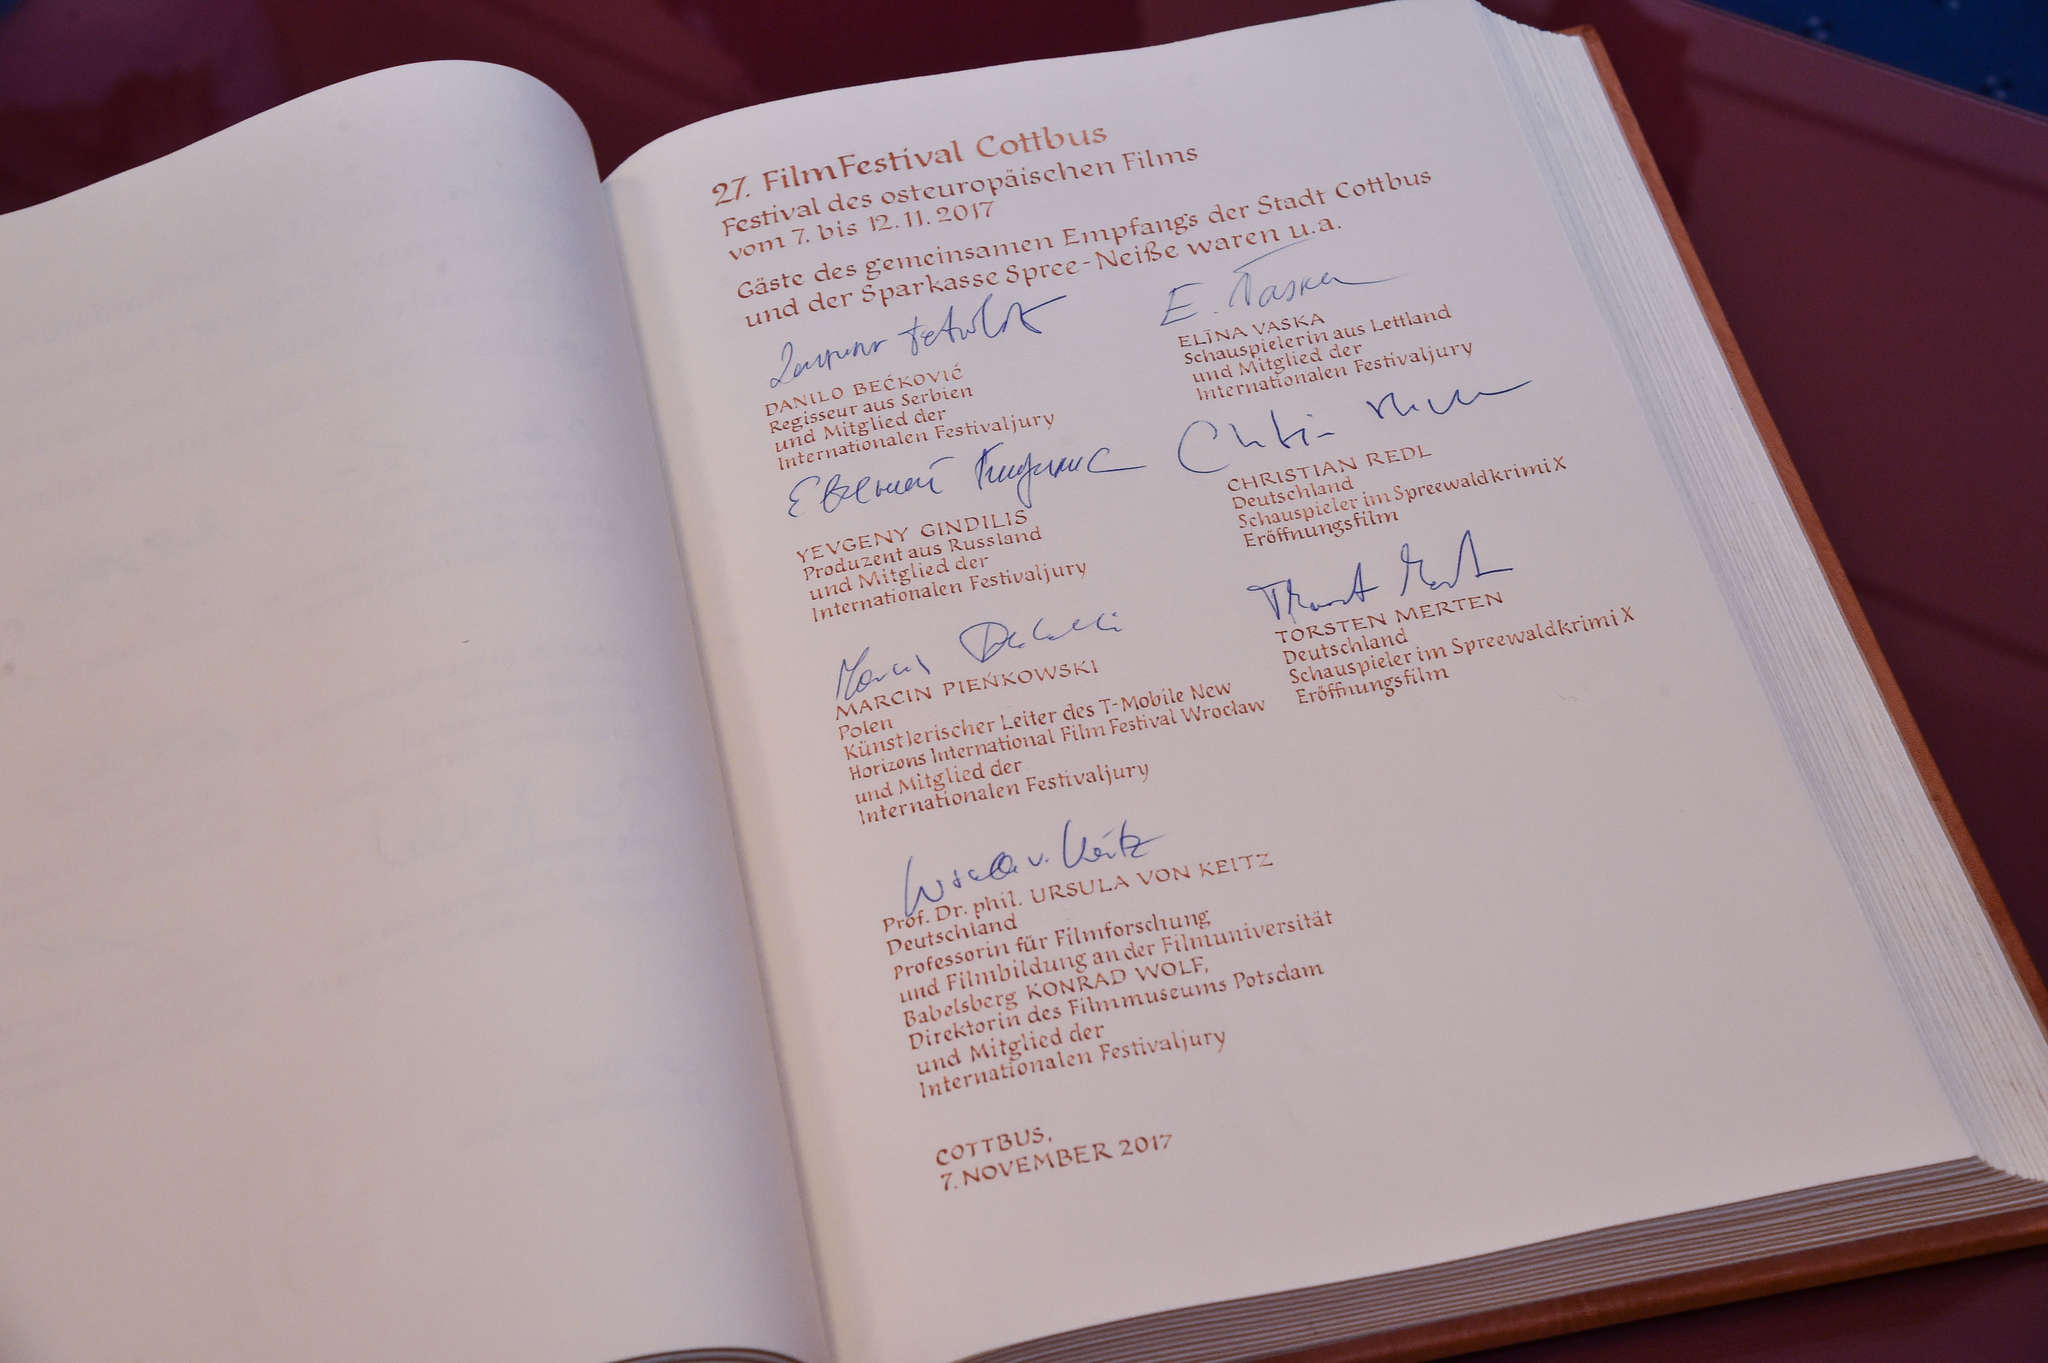 27. FilmFestival Cottbus
Festival des osteuropäischen Films
vom 7. bis 12.11.2017
Gäste des gemeinsamen Empfangs der Stadt Cottbus
und der Sparkasse Spree-Neiße waren u.a.
DANILO BEĆKOVIĆ
Regisseur aus Serbien
und Mitglied der
Internationalen Festivaljury
YEVGENY GINDILIS
Produzent aus Russland
und Mitglied der
Internationalen Festivaljury
Marcin
MARCIN PIEŃKOWSKI
Polen
Künstlerischer Leiter des T-Mobile New
Horizons International Film Festival Wrocław
und Mitglied der
Internationalen Festivaljury
Ursula v. Keitz
Prof. Dr. phil. URSULA VON KEITZ
Deutschland
Professorin für Filmforschung
und Filmbildung an der Filmuniversität
Babelsberg KONRAD WOLF,
Direktorin des Filmmuseums Potsdam
und Mitglied der
Internationalen Festivaljury
E. Vaska
ELĪNA VASKA
Schauspielerin aus Lettland
und Mitglied der
Internationalen Festivaljury
CHRISTIAN REDL
Deutschland
Schauspieler im Spreewaldkrimi X
Eröffnungsfilm
TORSTEN MERTEN
Deutschland
Schauspieler im Spreewaldkrimi X
Eröffnungsfilm
COTTBUS,
7. NOVEMBER 2017